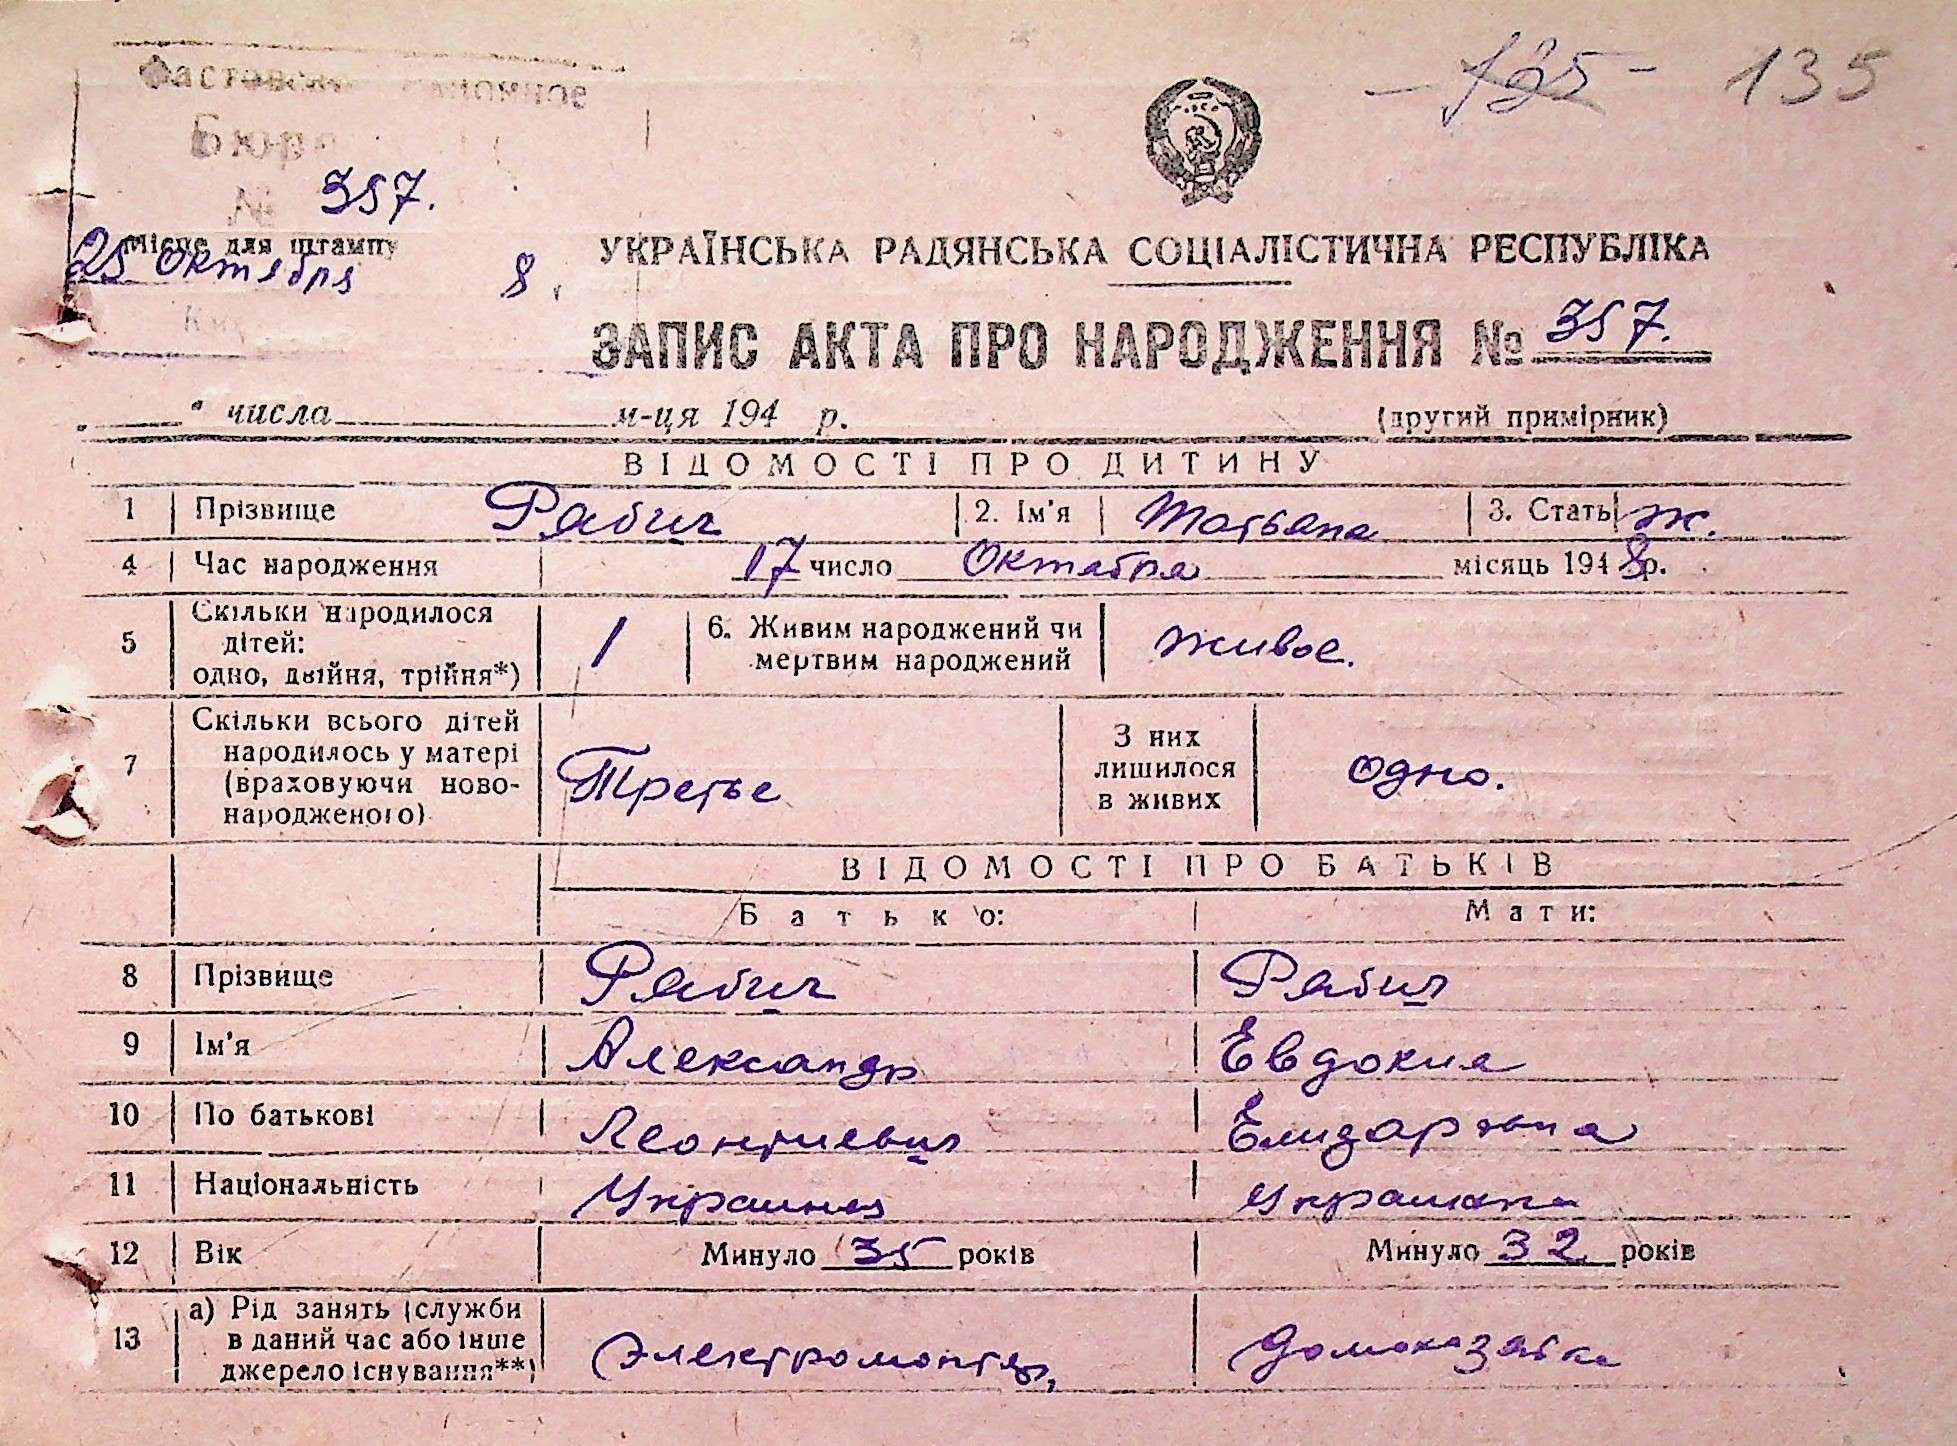 Фастовск районное
– 135 – 135
Бюро
№ 357.
Місце для штампу
25 Октября 8.
УКРАЇНСЬКА РАДЯНСЬКА СОЦІАЛІСТИЧНА РЕСПУБЛІКА
ЗАПИС АКТА ПРО НАРОДЖЕННЯ № 357.
" числа м-ця 194 р. (другий примірник)
ВІДОМОСТІ ПРО ДИТИНУ
1 Прізвище Рябич 2. Ім'я Татьяна 3. Стать ж.
4 Час народження 17 число Октября місяць 194 8 р.
5 Скільки народилося
дітей:
одно, двійня, трійня*)
1
6. Живим народжений чи
мертвим народжений
живое.
7 Скільки всього дітей
народилось у матері
(враховуючи ново-
народженого)
Третье
З них
лишилося
в живих
одно.
ВІДОМОСТІ ПРО БАТЬКІВ
Батько: Мати:
8 Прізвище Рябич Рябич
9 Ім'я Александр Евдокия
10 По батькові Леонтиевич Елизаровна
11 Національність Украинец Украинка
12 Вік Минуло 35 років Минуло 32 років
13 а) Рід занять (служби
в даний час або інше
джерело існування**)
Электромонтер, домохозяйка